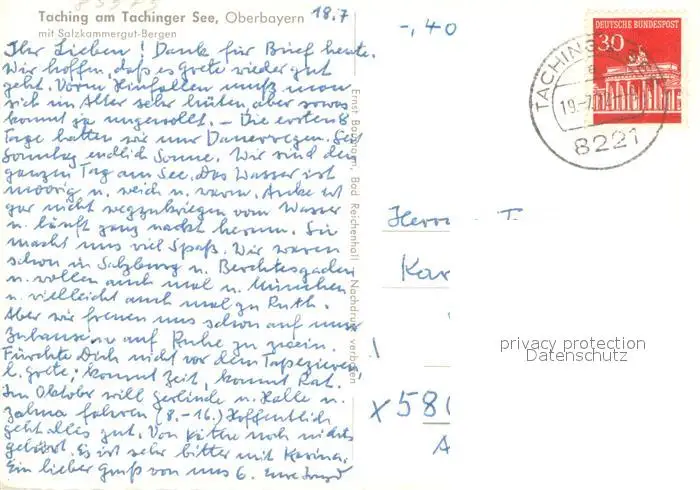 Taching am Tachinger See, Oberbayern
mit Salzkammergut-Bergen
18.7
-,40
Ihr Lieben! Dank für Brief heute.
Wir hoffen, daß es Grete wieder gut
geht. Vorm Hinfallen muß man
sich im Alter sehr hüten, aber sowas
kommt ja ungewollt. – Die ersten 8
Tage hatten wir nur Dauerregen. Seit
Sonntag endlich Sonne. Wir sind den
ganzen Tag am See. Das Wasser ist
moorig u. weich u. warm. Anke ist
gar nicht wegzukriegen vom Wasser
u. läuft ganz nackt herum. Sie
macht uns viel Spaß. Wir waren
schon in Salzburg u. Berchtesgaden
u. wollen auch mal n. München
u. vielleicht auch mal zu Ruth.
Aber wir freuen uns schon auf unser
Zuhause u. auf Ruhe zu zweien.
Fürchte Dich nicht vor dem Tapezieren
l. Grete; kommt Zeit, kommt Rat.
Im Oktober will Gerlinde n. Halle u.
fahren (8.-16.) Hoffentlich
geht alles gut. Von Käthe noch nichts
gehört. Es ist sehr bitter mit Karina.
Ein lieber Gruß von uns 6. Eure
Ernst Baumann, Bad Reichenhall Nachdruck verboten
DEUTSCHE BUNDESPOST
30
TACHING
19.-7.
8221
Herrn T
Kar
x 580
A
privacy protection
Datenschutz